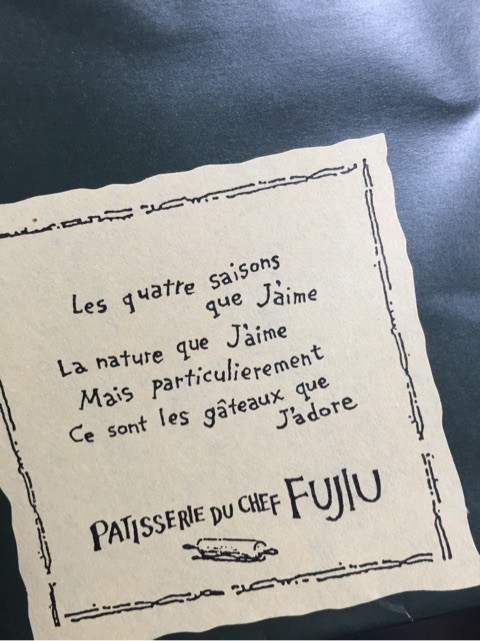 Les quatre saisons
que J'aime
La nature que J'aime
Mais particulierement
Ce sont les gâteaux que
J'adore
PATISSERIE DU CHEF FUJIU